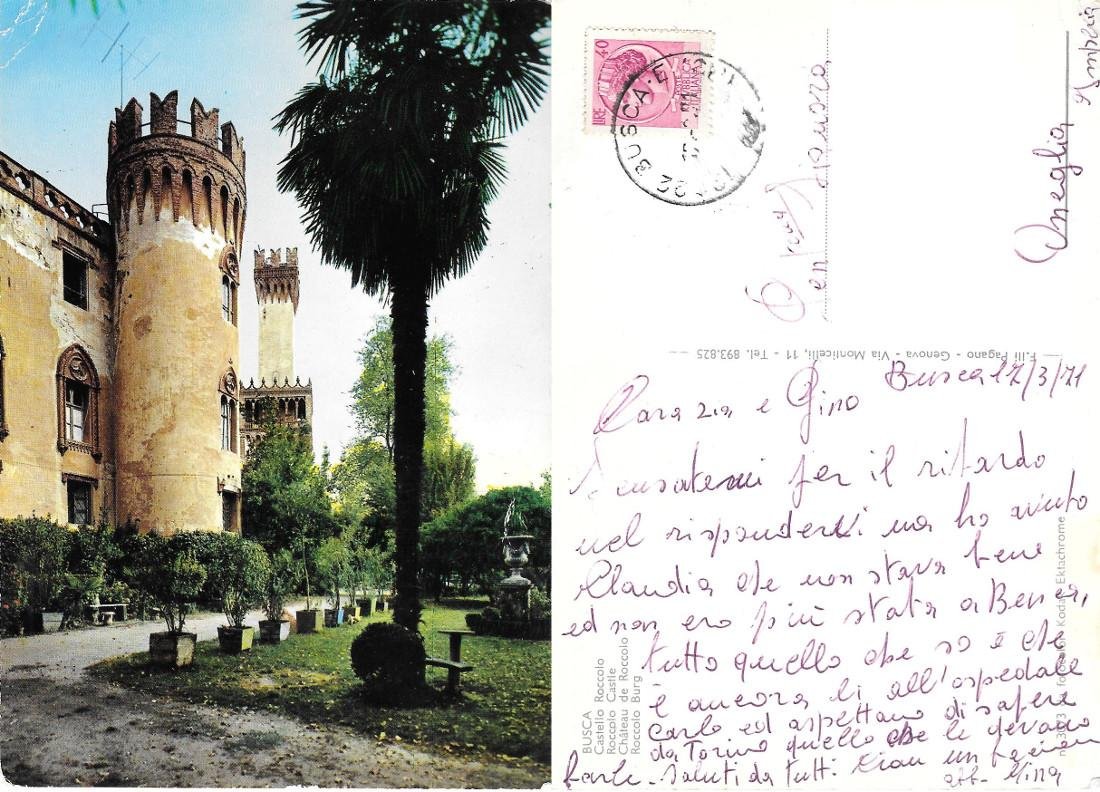 40
LIRE
REPUBBLICA
ITALIANA
BUSCA
Oneglia
Imperia
F.lli Pagano - Genova - Via Monticelli, 11 - Tel. 893.825
Busca 17/3/71
Cara zia e Gino
Scusatemi per il ritardo
nel rispondervi ma ho avuto
Claudia che non stava bene
ed non ero più stata a Busca,
tutto quello che so è che
è ancora lì all'ospedale
Carlo ed aspettano di sapere
da Torino quello che le devono
fare - Saluti da tutti. Ciao un bacione
aff. Mina
BUSCA
Castello Roccolo
Roccolo Castle
Château de Roccolo
Roccolo Burg
Kodak Ektachrome